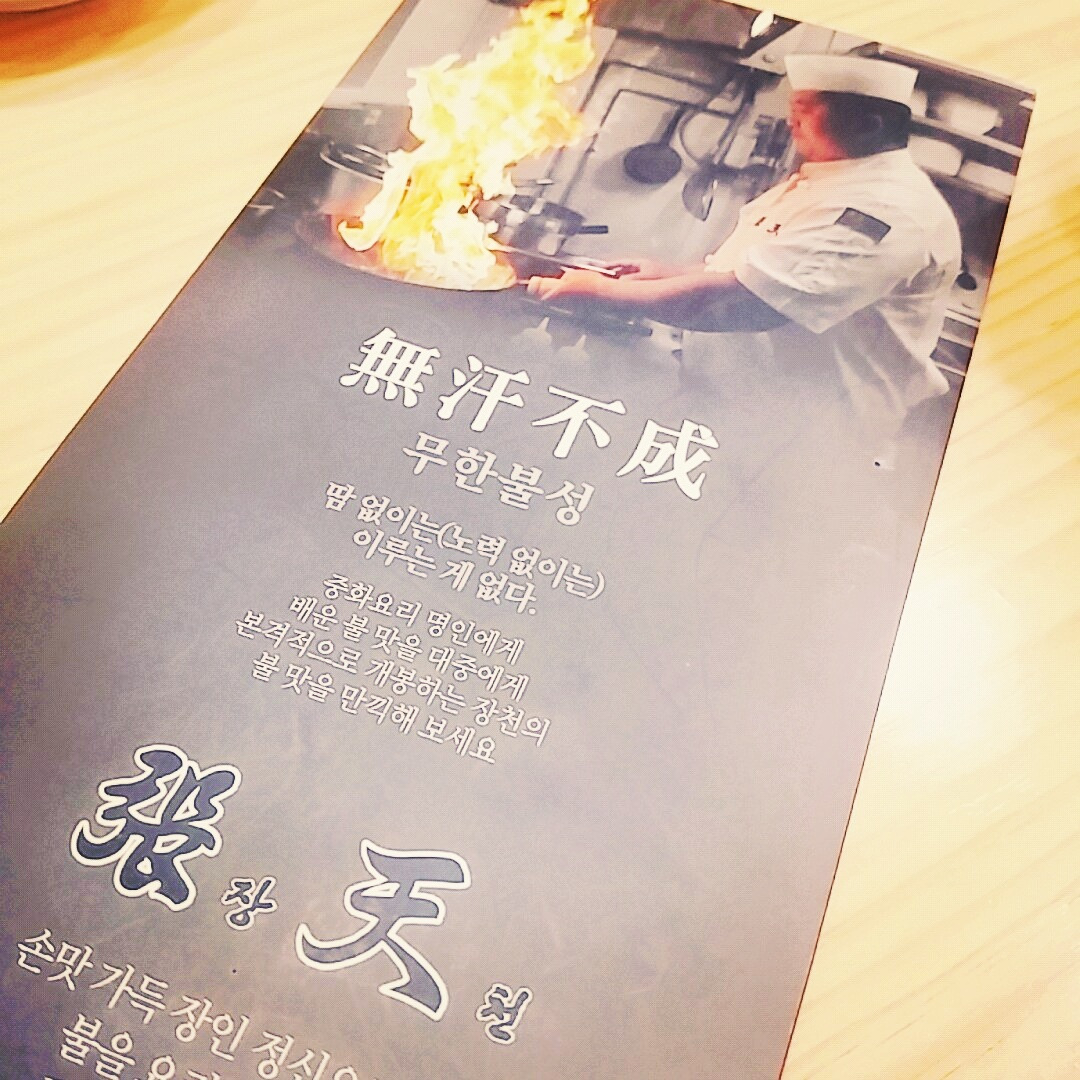 無汗不成
무한불성
땀 없이는(노력 없이는)
이루는 게 없다.
중화요리 명인에게
배운 불 맛을 대중에게
본격적으로 개봉하는 장천의
불 맛을 만끽해 보세요
張 장 天 천
손맛 가득 장인 정신
불을